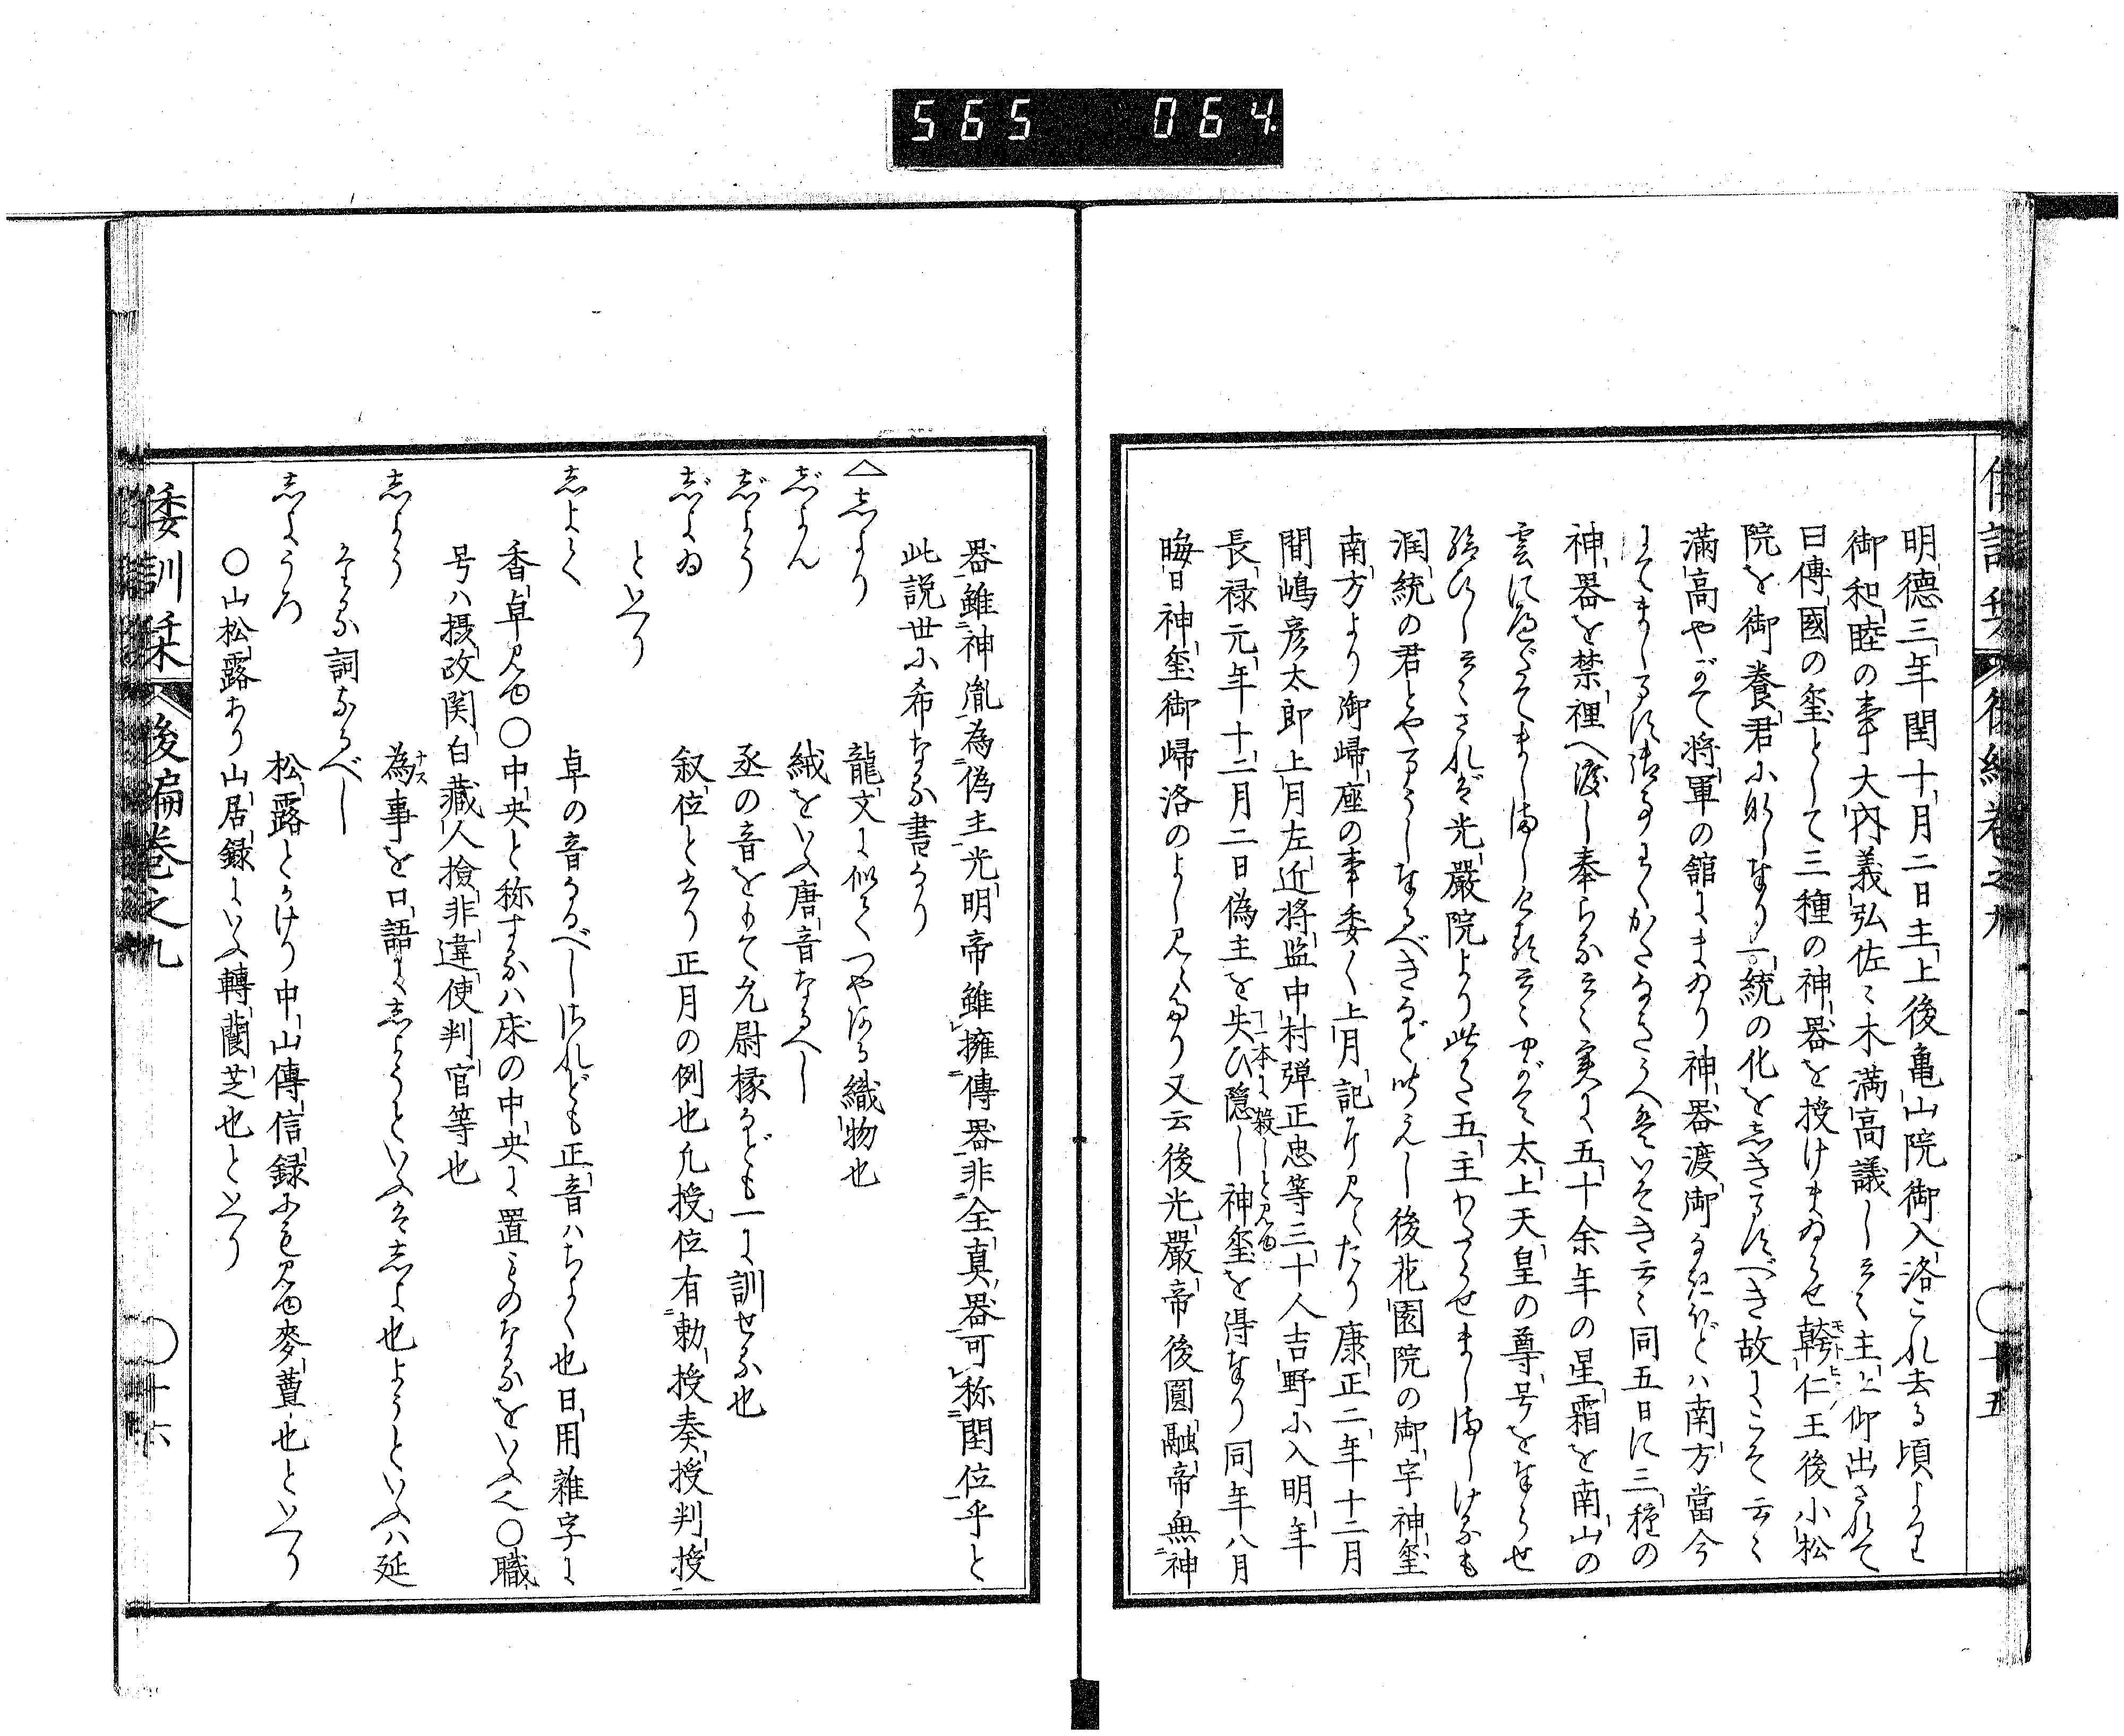 565 064
明德三年閏十月二日主上後亀山院御入洛これ去る頃より
御和睦の事大内義弘佐々木満高議し云々主上仰出されて
曰傳國の璽として三種の神器を授けまゐらせ幹仁王後小松
モトヒ
院を御養君に成し奉り一統の化をしきるすべき故にこそ云々
満高やがて将軍の舘にまゐり神器渡御
ハ南方當今
云々同五日に三種の
神器を禁裡へ渡し奉らる云々実に五十余年の星霜を南山の
雲にへだて
太上天皇の尊号を奉らせ
給ひし云々されば光嚴院より此かた五主わたらせましましけるも
潤統の君とや申し奉るべきなど
後花園院の御宇神璽
南方より御歸座の事委く上月記に見えたり康正二年十二月
間嶋彦太郎上月左近将監中村弾正忠等三十人吉野に入明年
長禄元年十二月二日偽主を失ひ隠し神璽を得奉り同年八月
一本に殺しと見ゆ
晦日神璽御歸洛のよし見えたり又云後光嚴帝後圓融帝無神
十五
器雖神胤為偽主光明帝雖擁傳器非全真器可称閏位乎と
此説世に希なる書なり
△志より 龍文に似てつやある織物也
志゛よん 絨をいふ唐音なるべし
志゛よう 丞の音をもて允尉椽なども一に訓せる也
志゛よゐ 叙位と書り正月の例也允授位有勅授奏授判授
といへり
志よく 卓の音なるべしされども正音ハちよく也日用雑字に
香卓見ゆ〇中央と称するハ床の中央に置ものなるをいへり〇職
号ハ摂政関白藏人撿非違使判官等也
志よう 為事を口語に志ようといふハ志よ也ようといふハ延
ナス
たる詞なるべし
志ようろ 松露とかけり中山傳信録にも見ゆ麥蕈也といへり
〇山松露あり山居録にいふ轉蘭芝也といへり
倭訓栞 後編巻之九 十六